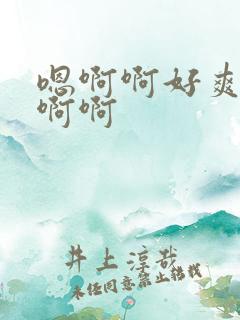 嗯啊啊好爽
啊啊
井上淳哉
未经同意禁止转载